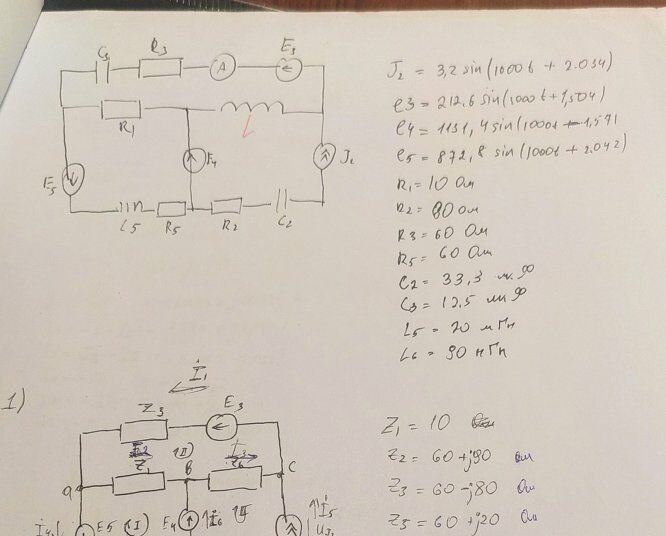 C3 R3 A E3
R1 L
E5 E4 J2
L5 R5 R2 C2
J2 = 3,2 sin(1000t + 2.034)
e3 = 212,6 sin(1000t + 1,504)
e4 = 1131,4 sin(1000t - 1,571
e5 = 872,8 sin(1000t + 2.042)
R1 = 10 Ом
R2 = 80 Ом
R3 = 60 Ом
R5 = 60 Ом
C2 = 33,3 мк Ф
C3 = 12,5 мк Ф
L5 = 20 мГн
L6 = 90 мГн
1)
İ1
Z3 E3
Z1 (II) Z6
a b c
E5 (I) E4 İ6 İ5
Z1 = 10
Z2 = 60 + j90 Ом
Z3 = 60 - j80 Ом
Z5 = 60 + j20 Ом